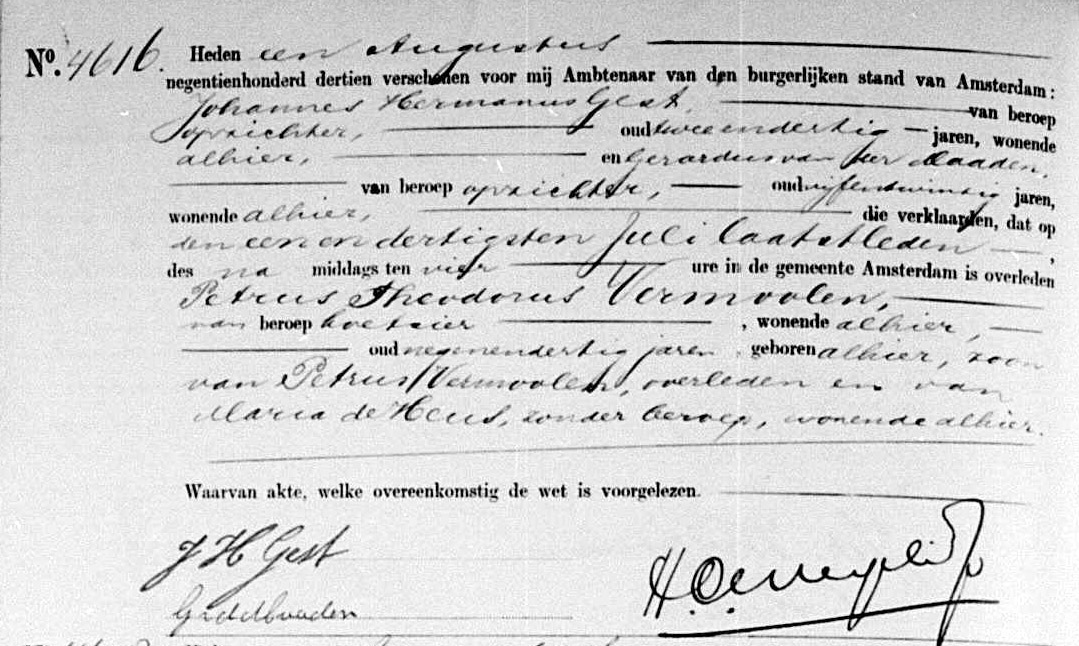 No. 4616. Heden een Augustus
negentienhonderd dertien verschenen voor mij Ambtenaar van den burgerlijken stand van Amsterdam:
Johannes Hermanus Gest, van beroep
opzichter, oud tweeendertig jaren, wonende
alhier, en Gerardus van der Maaden,
van beroep opzichter, oud vijfentwintig jaren,
wonende alhier, die verklaarden, dat op
den een en dertigsten Juli laatstleden,
des na middags ten vier ure in de gemeente Amsterdam is overleden
Petrus Theodorus Vermoolen,
van beroep koetsier, wonende alhier,
oud negenendertig jaren, geboren alhier, zoon
van Petrus Vermoolen, overleden en van
Maria de Heus, zonder beroep, wonende alhier.
Waarvan akte, welke overeenkomstig de wet is voorgelezen.
J H Gest